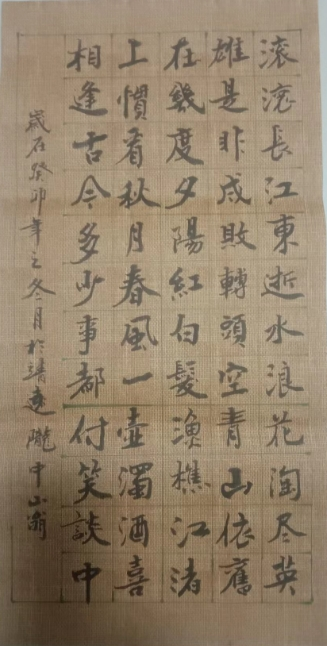 滚滚長江東逝水浪花淘尽英
雄是非成敗轉頭空青山依舊
在幾度夕陽紅白髮漁樵江渚
上慣看秋月春風一壺濁酒喜
相逢古今多少事都付笑談中
歲在癸卯年之冬月於靖遠隴中山翁